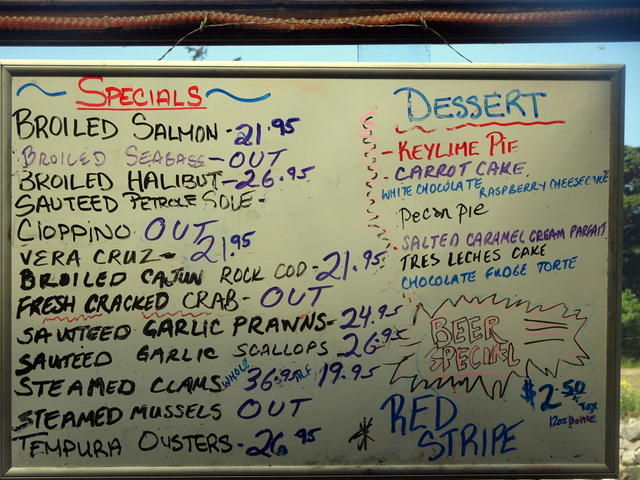 SPECIALS
BROILED SALMON - 21.95
BROILED SEABASS - OUT
BROILED HALIBUT - 26.95
SAUTEED PETROLE SOLE -
CIOPPINO OUT
VERA CRUZ - 21.95
BROILED CAJUN ROCK COD - 21.95
FRESH CRACKED CRAB - OUT
SAUTEED GARLIC PRAWNS - 24.95
SAUTEED GARLIC SCALLOPS 26.95
STEAMED CLAMS WHOLE 36.95 HALF 19.95
STEAMED MUSSELS OUT
TEMPURA OYSTERS - 26.95
DESSERT
- KEYLIME PIE
- CARROT CAKE
WHITE CHOCOLATE RASPBERRY CHEESECAKE
Pecan Pie
- SALTED CARAMEL CREAM PARFAIT
TRES LECHES CAKE
CHOCOLATE FUDGE TORTE
BEER
SPECIAL
$2.50 + TAX
12oz Bottle
RED
STRIPE